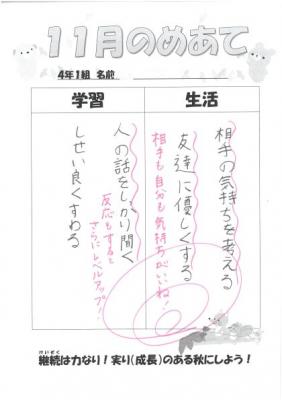 11月のめあて
4年1組 名前
学習
生活
相手の気持ちを考える
友達に優しくする
相手も自分も気持ちがいいね!
人の話をしっかり聞く
反応もすると
さらにレベルアップ!
しせい良くすわる
けいぞく
継続は力なり!実り(成長)のある秋にしよう!